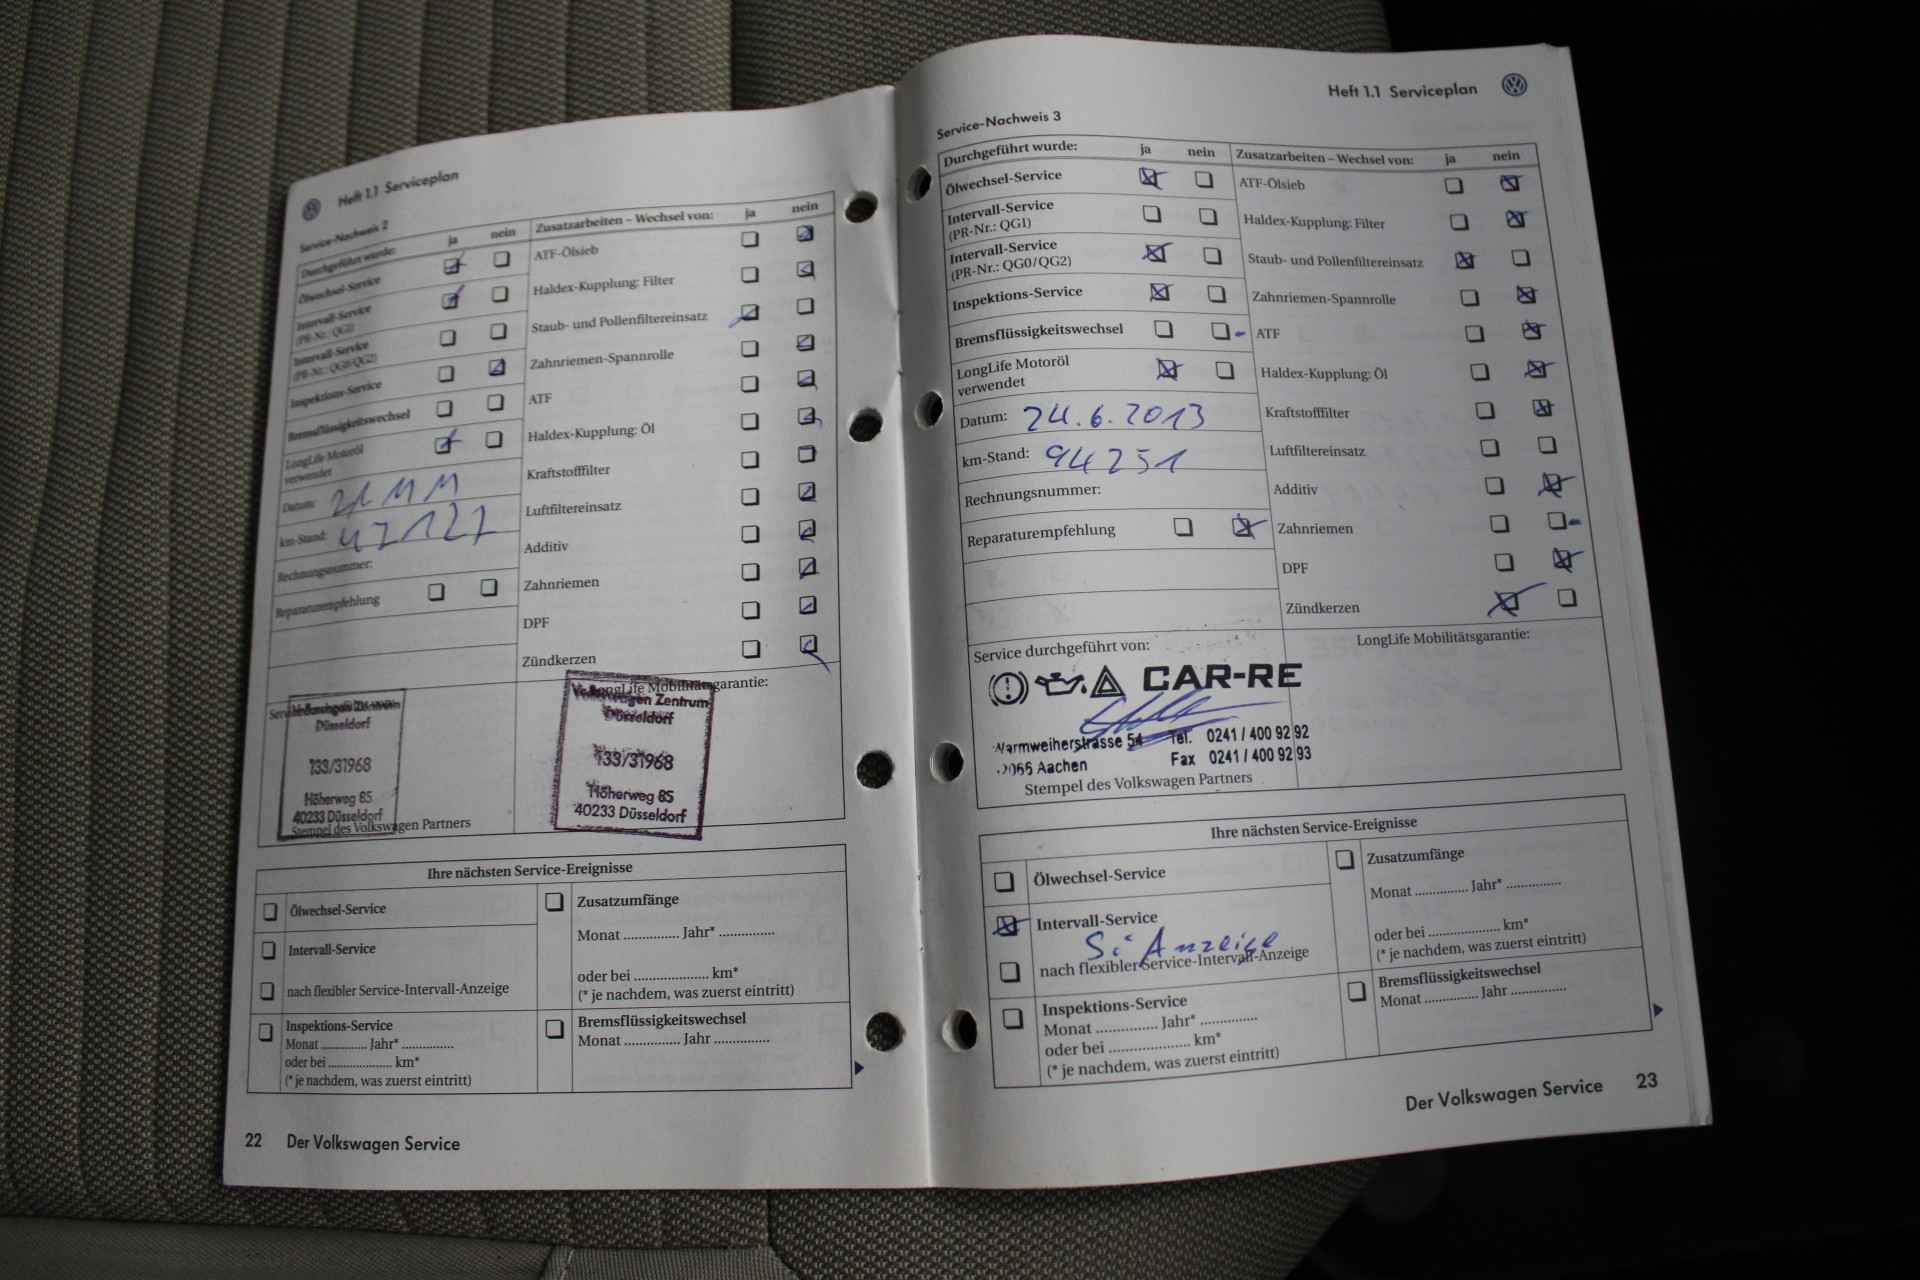 Heft 1.1 Serviceplan
Service-Nachweis 2
Durchgeführt wurde: ja nein
Ölwechsel-Service
Intervall-Service
(PR-Nr.: QG1)
Intervall-Service
(PR-Nr.: QG0/QG2)
Inspektions-Service
Bremsflüssigkeitswechsel
LongLife Motoröl
verwendet
Datum:
km-Stand: 47127
Rechnungsnummer:
Reparaturempfehlung
Zusatzarbeiten – Wechsel von: ja nein
ATF-Ölsieb
Haldex-Kupplung: Filter
Staub- und Pollenfiltereinsatz
Zahnriemen-Spannrolle
ATF
Haldex-Kupplung: Öl
Kraftstofffilter
Luftfiltereinsatz
Additiv
Zahnriemen
DPF
Zündkerzen
Düsseldorf
133/31968
Höherweg 85
40233 Düsseldorf
Stempel des Volkswagen Partners
LongLife Mobilitätsgarantie:
Volkswagen Zentrum
Düsseldorf
133/31968
Höherweg 85
40233 Düsseldorf
Ihre nächsten Service-Ereignisse
Ölwechsel-Service
Intervall-Service
nach flexibler Service-Intervall-Anzeige
Inspektions-Service
Monat ............... Jahr* ...............
oder bei .................... km*
(* je nachdem, was zuerst eintritt)
Zusatzumfänge
Monat ............... Jahr* ...............
oder bei .................... km*
(* je nachdem, was zuerst eintritt)
Bremsflüssigkeitswechsel
Monat ............... Jahr ...............
22 Der Volkswagen Service
Heft 1.1 Serviceplan
Service-Nachweis 3
Durchgeführt wurde: ja nein
Ölwechsel-Service
Intervall-Service
(PR-Nr.: QG1)
Intervall-Service
(PR-Nr.: QG0/QG2)
Inspektions-Service
Bremsflüssigkeitswechsel
LongLife Motoröl
verwendet
Datum: 24.6.2013
km-Stand: 94251
Rechnungsnummer:
Reparaturempfehlung
Zusatzarbeiten – Wechsel von: ja nein
ATF-Ölsieb
Haldex-Kupplung: Filter
Staub- und Pollenfiltereinsatz
Zahnriemen-Spannrolle
ATF
Haldex-Kupplung: Öl
Kraftstofffilter
Luftfiltereinsatz
Additiv
Zahnriemen
DPF
Zündkerzen
Service durchgeführt von:
CAR-RE
Warmweiherstrasse 54 Tel. 0241 / 400 92 92
Aachen Fax 0241 / 400 92 93
Stempel des Volkswagen Partners
LongLife Mobilitätsgarantie:
Ihre nächsten Service-Ereignisse
Ölwechsel-Service
Intervall-Service
Anzeige
nach flexibler Service-Intervall-Anzeige
Inspektions-Service
Monat ............... Jahr* ...............
oder bei .................... km*
(* je nachdem, was zuerst eintritt)
Zusatzumfänge
Monat ............... Jahr* ...............
oder bei .................... km*
(* je nachdem, was zuerst eintritt)
Bremsflüssigkeitswechsel
Monat ............... Jahr ...............
Der Volkswagen Service 23